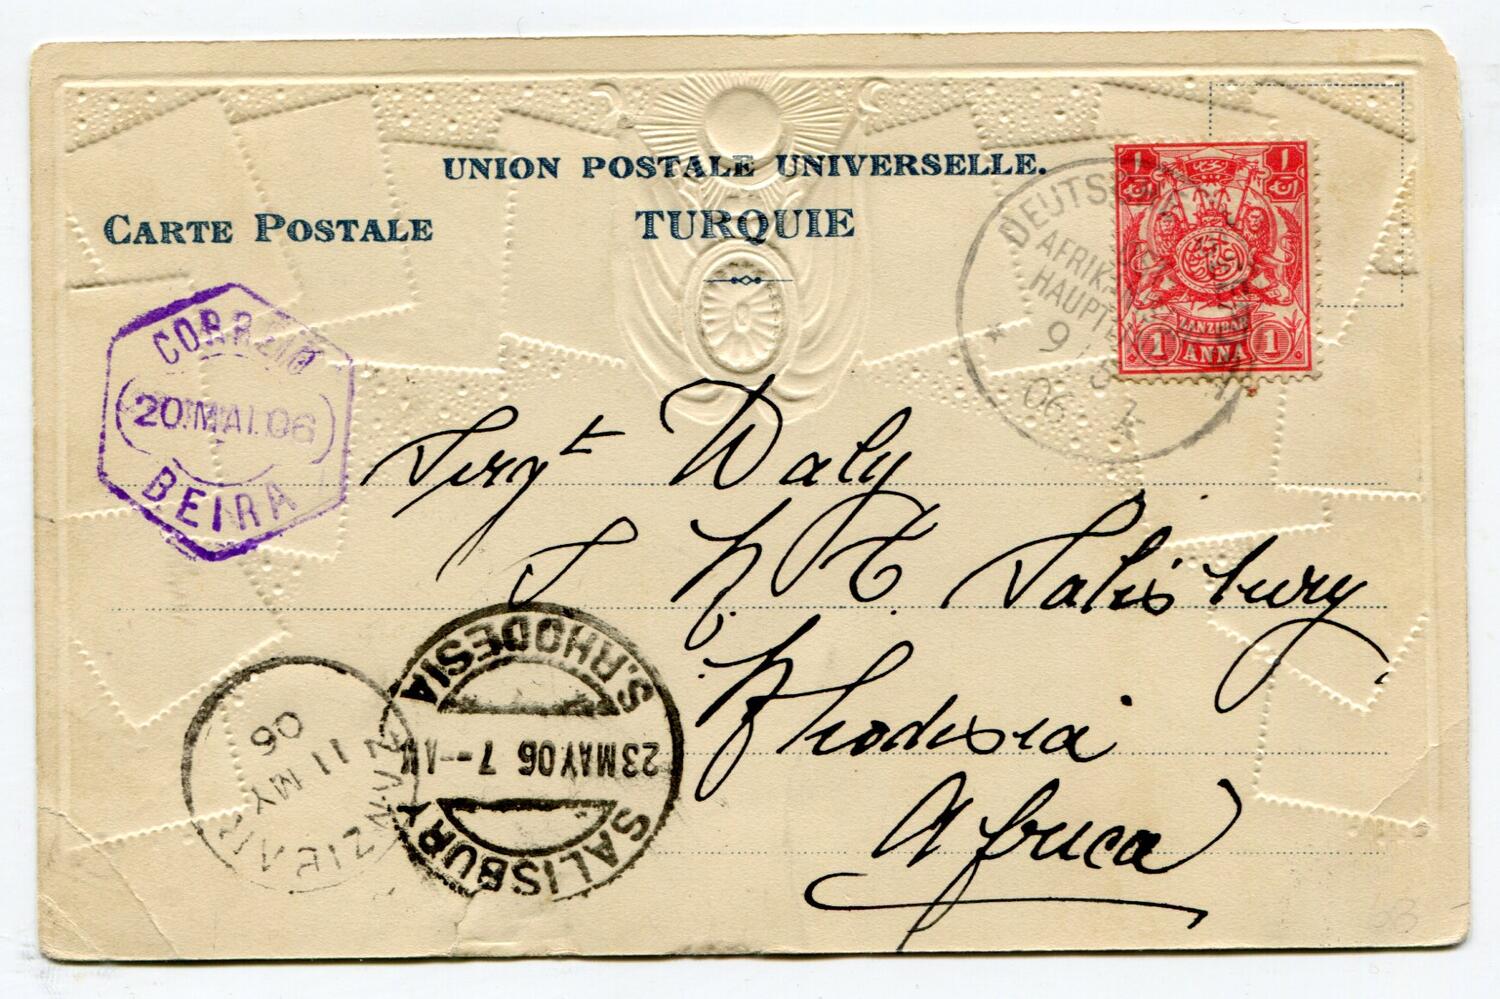 UNION POSTALE UNIVERSELLE.
CARTE POSTALE
TURQUIE
1 1
ZANZIBAR
1 ANNA 1
DEUTSCHE
AFRIKA
HAUPT
9 5
06
CORREIO
20.MAI.06
BEIRA
Sergt Daly
Salisbury
Rhodesia
Africa
S. RHODESIA
23 MAY 06 7--AM
SALISBURY
ZANZIBAR
11 MY
06